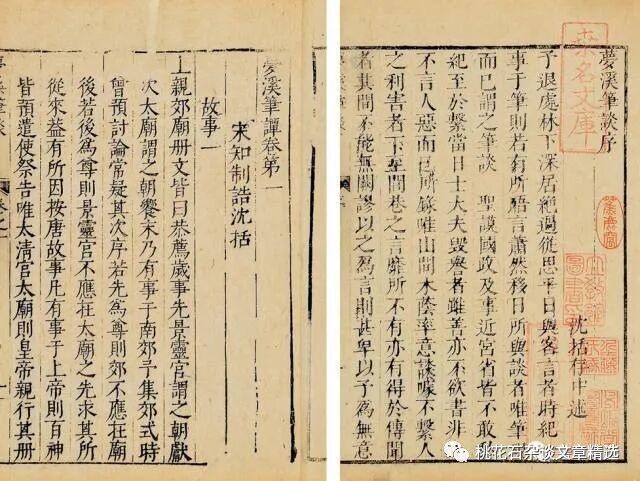 夢溪筆談序
沈括存中述
予退處林下深居絶過從思平日與客言者時紀
事于筆則若有所晤言蕭然移日所與談者唯筆
而已謂之筆談 聖謨國政及事近宮省皆不敢
紀至於繫當日士大夫毀譽者雖善亦不欲書非
不言人惡而已所錄唯山間木蔭率意談噱不繫人
之利害者下至閭巷之言靡所不有亦有得於傳聞
者其間不能無闕謬以之為言則甚卑以予為無意
桑名文庫
夢溪筆譚卷第一
宋知制誥沈括
故事一
上親郊廟册文皆曰恭薦歲事先景靈宮謂之朝獻
次太廟謂之朝饗末乃有事于南郊予集郊式時
曾預討論常疑其次序若先為尊則郊不應在廟
後若後為尊則景靈宮不應在太廟之先求其所
從來葢有所因按唐故事凡有事于上帝則百神
皆預遣使祭告唯太清宮太廟則皇帝親行其册
桃花石杂谈文章精选